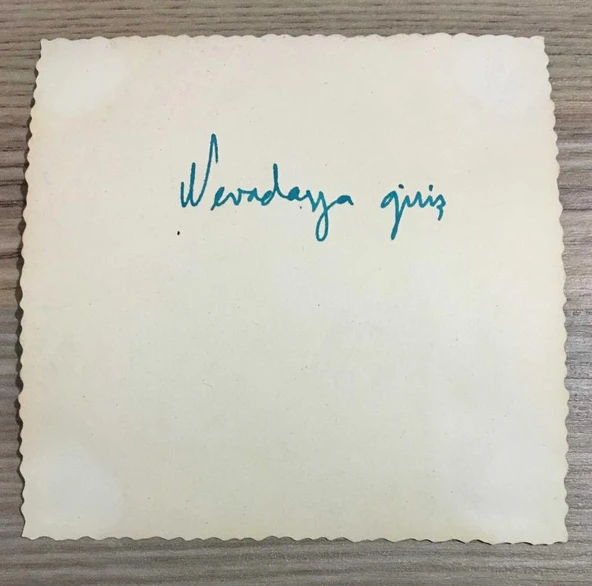 Nevadaya giriş